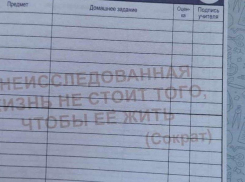 Предмет Домашнее задание Оцен-ка Подпись учителя
НЕИССЛЕДОВАННАЯ
ЖИЗНЬ НЕ СТОИТ ТОГО,
ЧТОБЫ ЕЕ ЖИТЬ
(Сократ)